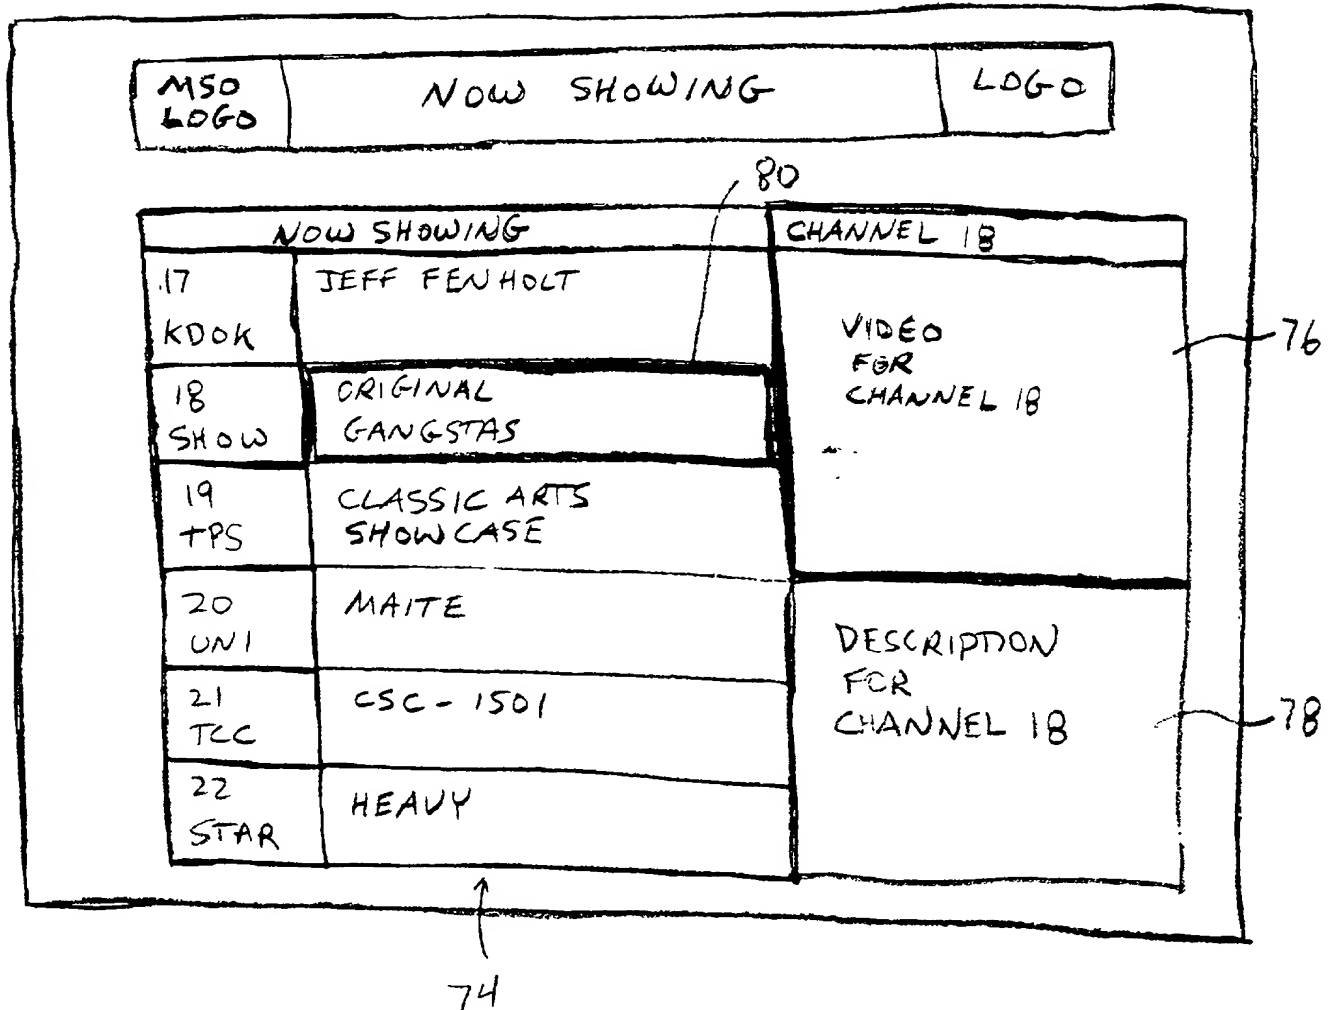 MSO
LOGO
NOW SHOWING
LOGO
80
NOW SHOWING
CHANNEL 18
17
KDOK
JEFF FENHOLT
18
SHOW
ORIGINAL
GANGSTAS
19
TPS
CLASSIC ARTS
SHOWCASE
20
UNI
MAITE
21
TCC
CSC - 1501
22
STAR
HEAVY
VIDEO
FOR
CHANNEL 18
76
DESCRIPTION
FOR
CHANNEL 18
78
74